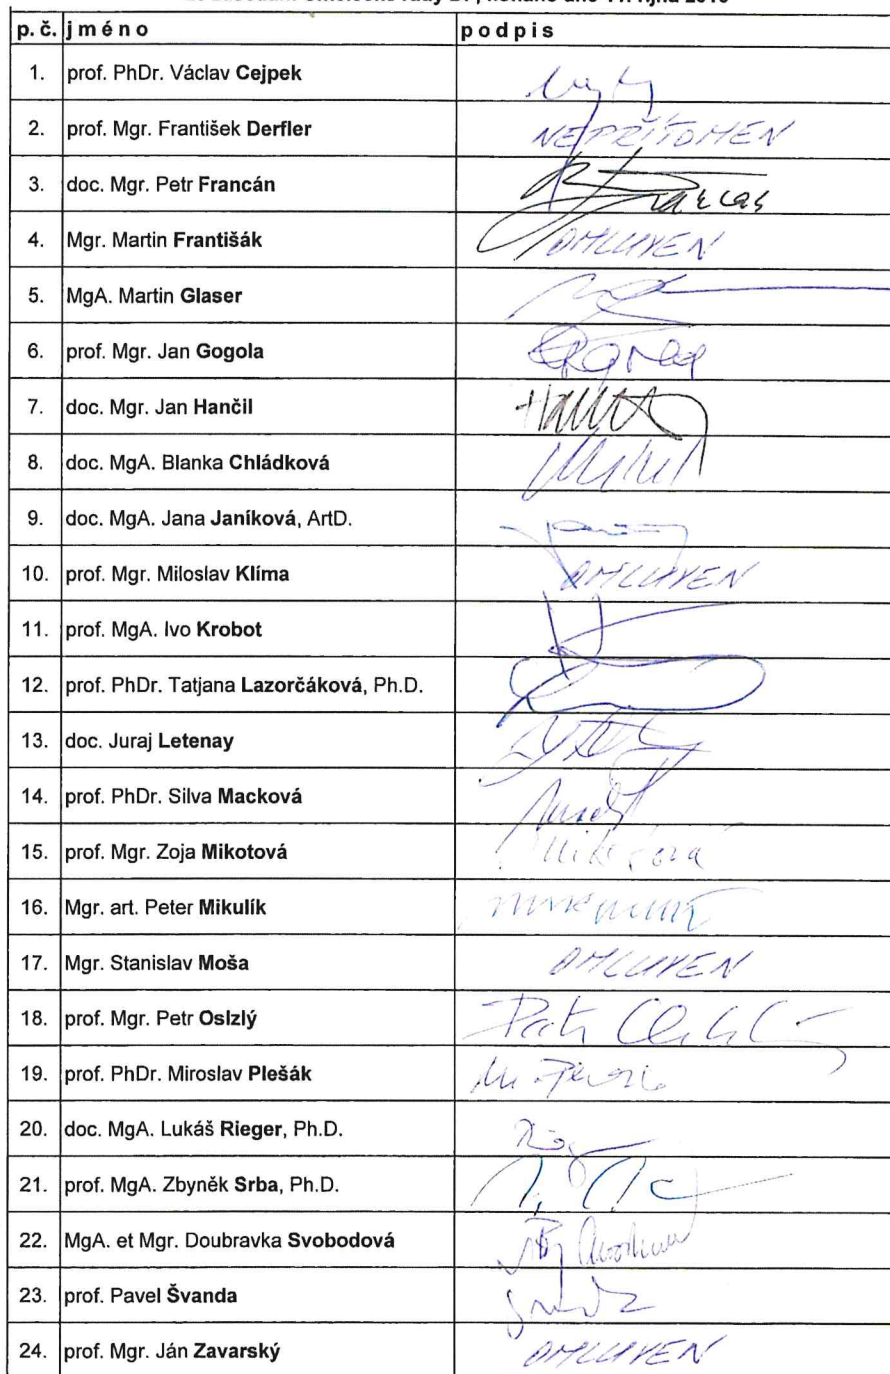 p. č. j m é n o p o d p i s
1. prof. PhDr. Václav Cejpek
2. prof. Mgr. František Derfler NEPŘÍTOMEN
3. doc. Mgr. Petr Francán
4. Mgr. Martin Františák OMLUVEN
5. MgA. Martin Glaser
6. prof. Mgr. Jan Gogola
7. doc. Mgr. Jan Hančil
8. doc. MgA. Blanka Chládková
9. doc. MgA. Jana Janíková, ArtD.
10. prof. Mgr. Miloslav Klíma OMLUVEN
11. prof. MgA. Ivo Krobot
12. prof. PhDr. Tatjana Lazorčáková, Ph.D.
13. doc. Juraj Letenay
14. prof. PhDr. Silva Macková
15. prof. Mgr. Zoja Mikotová Mikotová
16. Mgr. art. Peter Mikulík
17. Mgr. Stanislav Moša OMLUVEN
18. prof. Mgr. Petr Oslzlý
19. prof. PhDr. Miroslav Plešák
20. doc. MgA. Lukáš Rieger, Ph.D.
21. prof. MgA. Zbyněk Srba, Ph.D.
22. MgA. et Mgr. Doubravka Svobodová
23. prof. Pavel Švanda
24. prof. Mgr. Ján Zavarský OMLUVEN